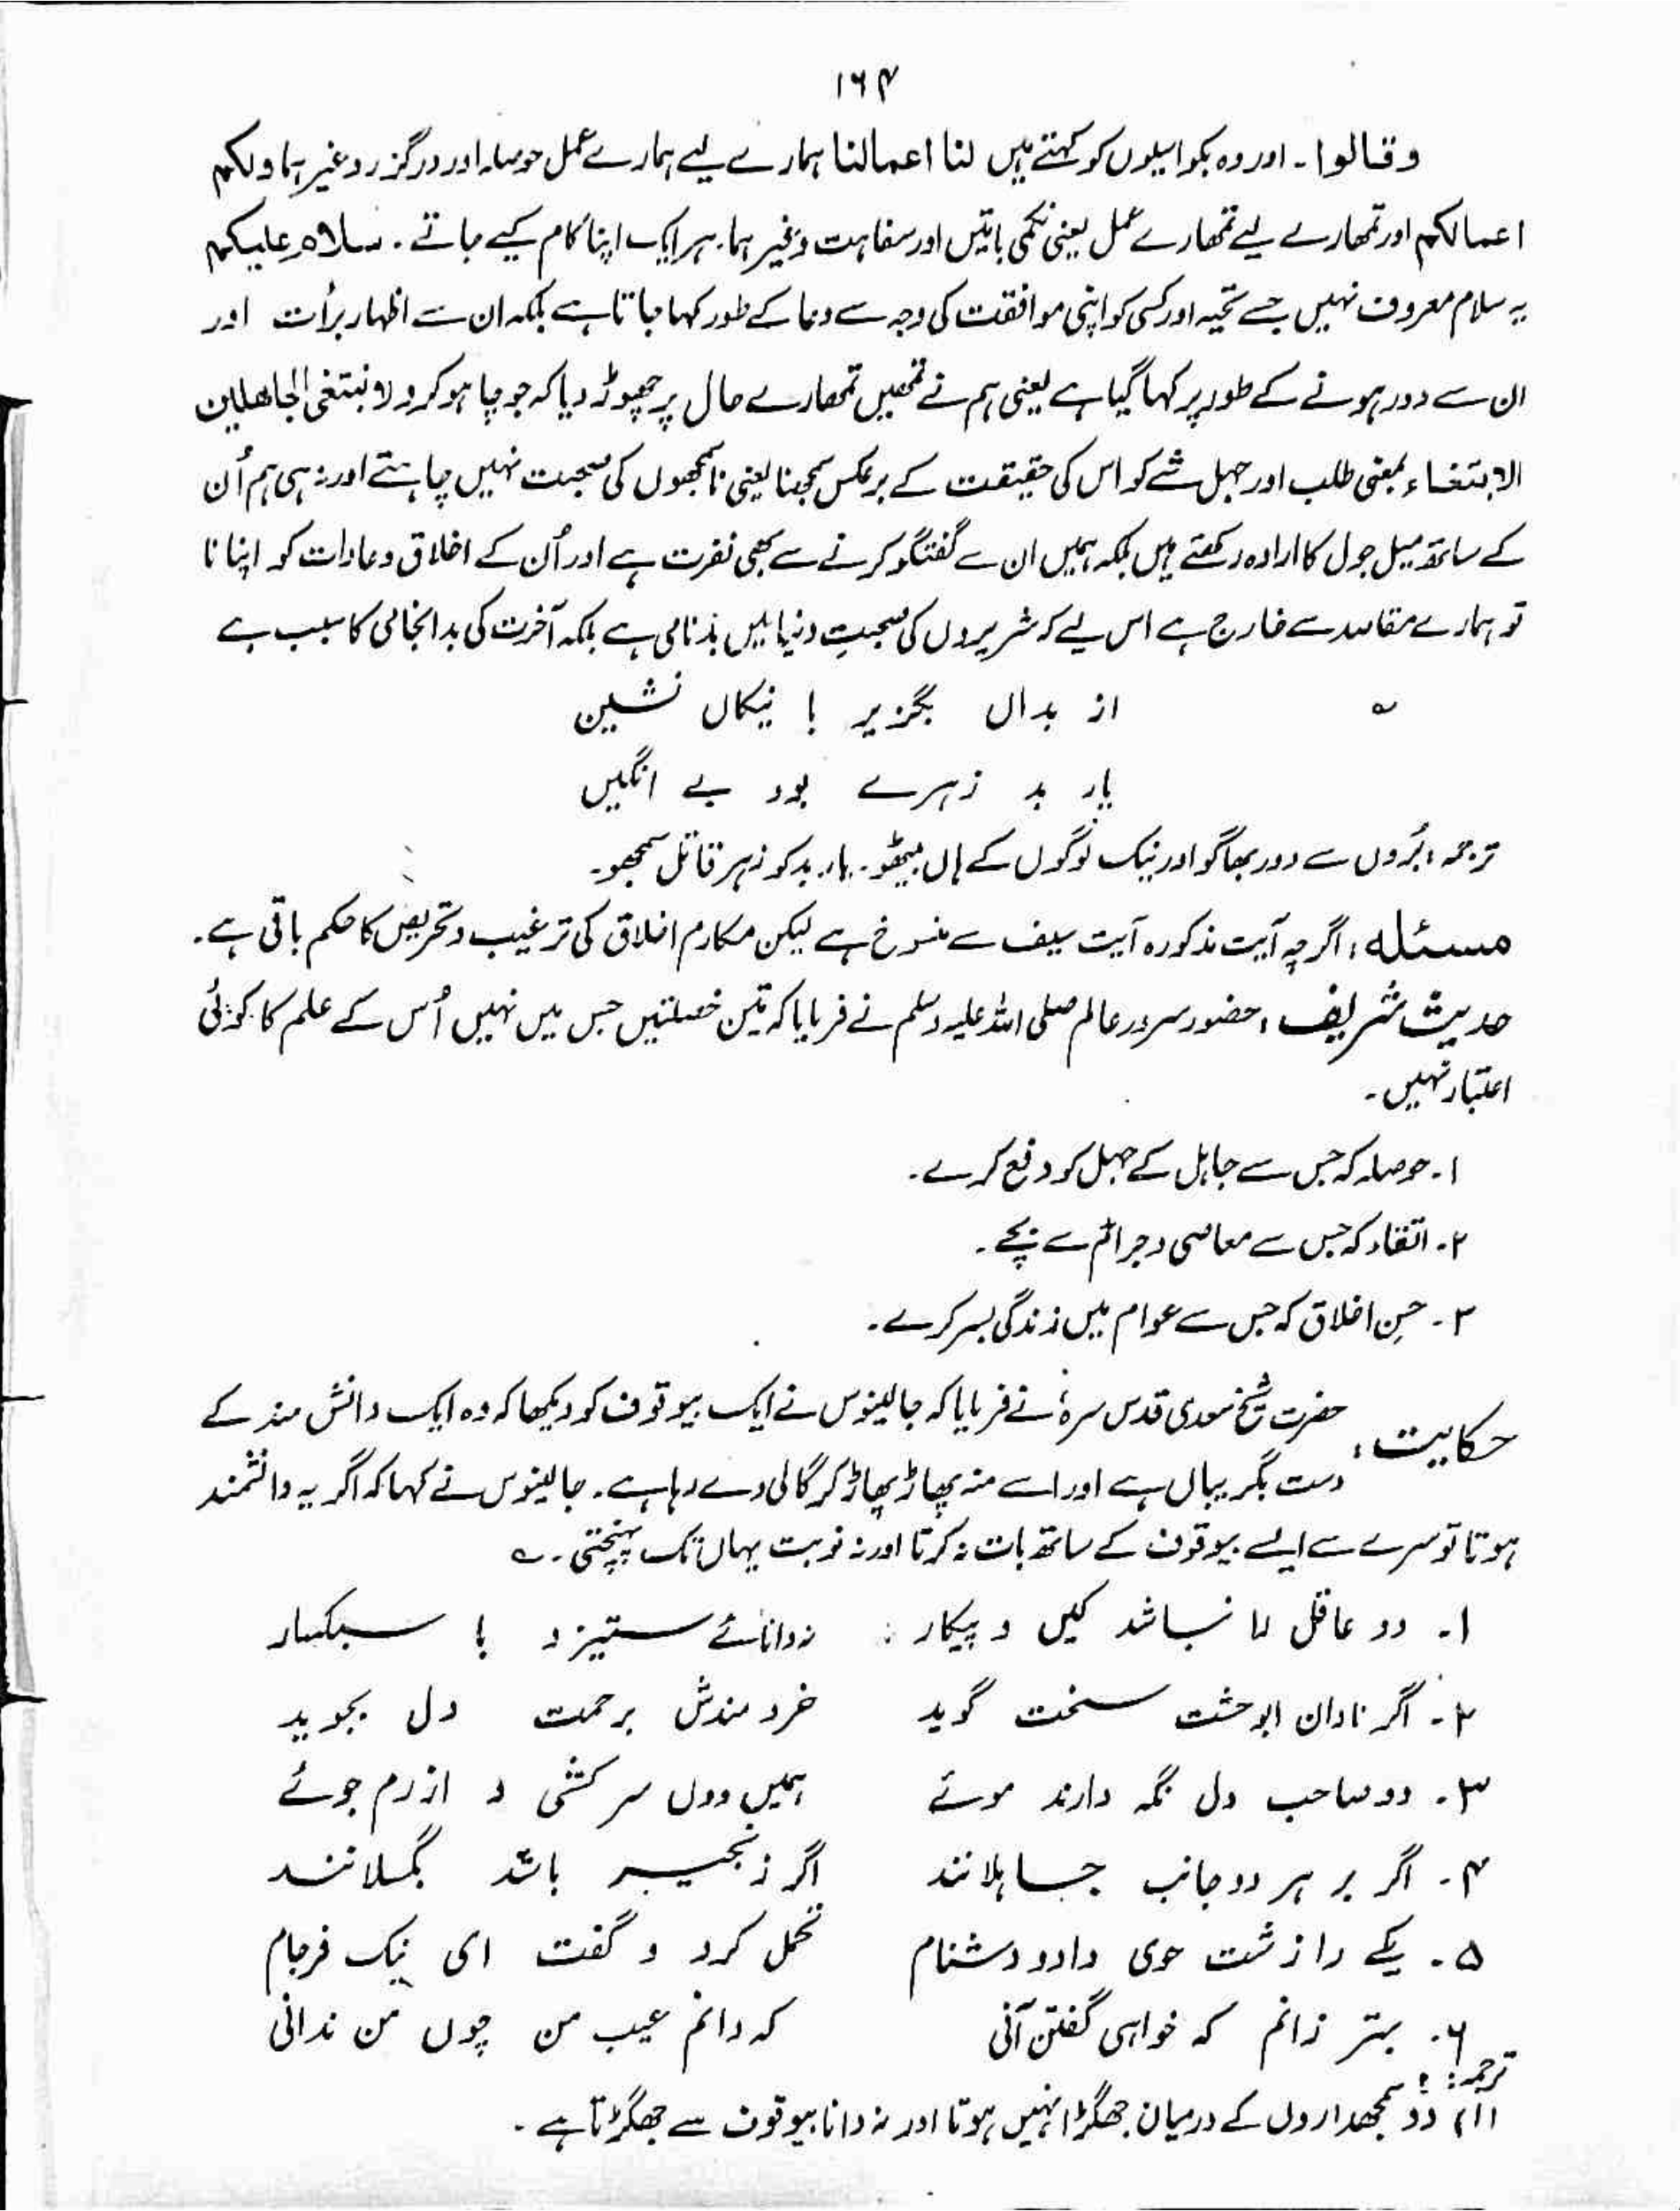 ۱۶۴
وقالوا۔ اور وہ بکواسیوں کو کہتے ہیں لنا اعمالنا ہمارے لیے ہمارے عمل حوصلہ اور درگزر وغیرہما ولکم
اعمالکم اور تمھارے لیے تمھارے عمل یعنی نکمی باتیں اور سفاہت وغیرہما۔ ہر ایک اپنا کام کیے جائے۔ سلام علیکم
یہ سلام معروف نہیں جسے تحیہ اور کسی کو اپنی موافقت کی وجہ سے دعا کے طور کہا جاتا ہے بلکہ ان سے اظہار برأت اور
ان سے دور ہونے کے طور پر کہا گیا ہے یعنی ہم نے تمھیں تمھارے حال پر چھوڑ دیا کہ جو چاہو کرو لا نبتغی الجاھلین
الابتغاء بمعنی طلب اور جہل شے کو اس کی حقیقت کے برعکس سمجھنا یعنی ناسمجھوں کی صحبت نہیں چاہتے اور نہ ہی ہم اُن
کے ساتھ میل جول کا ارادہ رکھتے ہیں بلکہ ہمیں ان سے گفتگو کرنے سے بھی نفرت ہے اور اُن کے اخلاق و عادات کو اپنانا
تو ہمارے مقاصد سے خارج ہے اس لیے کہ شریروں کی صحبتِ دنیا میں بدنامی ہے بلکہ آخرت کی بدانجامی کا سبب ہے
؎ از بداں بگزیر ! نیکاں نشین
یار بد زہرے بود بے انگبیں
ترجمہ: بُروں سے دور بھاگو اور نیک لوگوں کے ہاں بیٹھو۔ یار بد کو زہر قاتل سمجھو۔
مسئلہ: اگرچہ آیت مذکورہ آیت سیف سے منسوخ ہے لیکن مکارم اخلاق کی ترغیب و تحریص کا حکم باقی ہے۔
حدیث شریف: حضور سرور عالم صلی اللہ علیہ وسلم نے فرمایا کہ تین خصلتیں جس میں نہیں اُس کے علم کا کوئی
اعتبار نہیں۔
۱۔ حوصلہ کہ جس سے جاہل کے جہل کو دفع کرے۔
۲۔ اتقاء کہ جس سے معاصی و جرائم سے بچے۔
۳۔ حسنِ اخلاق کہ جس سے عوام میں زندگی بسر کرے۔
حکایت: حضرت شیخ سعدی قدس سرہٗ نے فرمایا کہ جالینوس نے ایک بیوقوف کو دیکھا کہ وہ ایک دانش مند کے
دست بگریباں ہے اور اسے منہ پھاڑ پھاڑ کر گالی دے رہا ہے۔ جالینوس نے کہا کہ اگر یہ دانشمند
ہوتا تو سرے سے ایسے بیوقوف کے ساتھ بات نہ کرتا اور نہ نوبت یہاں تک پہنچتی۔ ؎
۱۔ دو عاقل را نباشد کیں و پیکار نہ دانائے ستیزد با سبکسار
۲۔ اگر ناداں ابوحشت سخت گوید خرد مندش برحمت دل بجوید
۳۔ دو صاحب دل نگہ دارند موئے ہمیں ودں سرکشی و ازرم جوئے
۴۔ اگر بر ہر دو جانب جاہلانند اگر زنجیر باشد بگسلانند
۵۔ یکے را زشت خوی داد و دشنام تحمل کرد و گفت ای نیک فرجام
۶۔ بتر زانم کہ خواہی گفتن آنی کہ دانم عیب من چوں من ندانی
ترجمہ:
(۱) دو سمجھداروں کے درمیان جھگڑا نہیں ہوتا اور نہ دانا بیوقوف سے جھگڑتا ہے۔